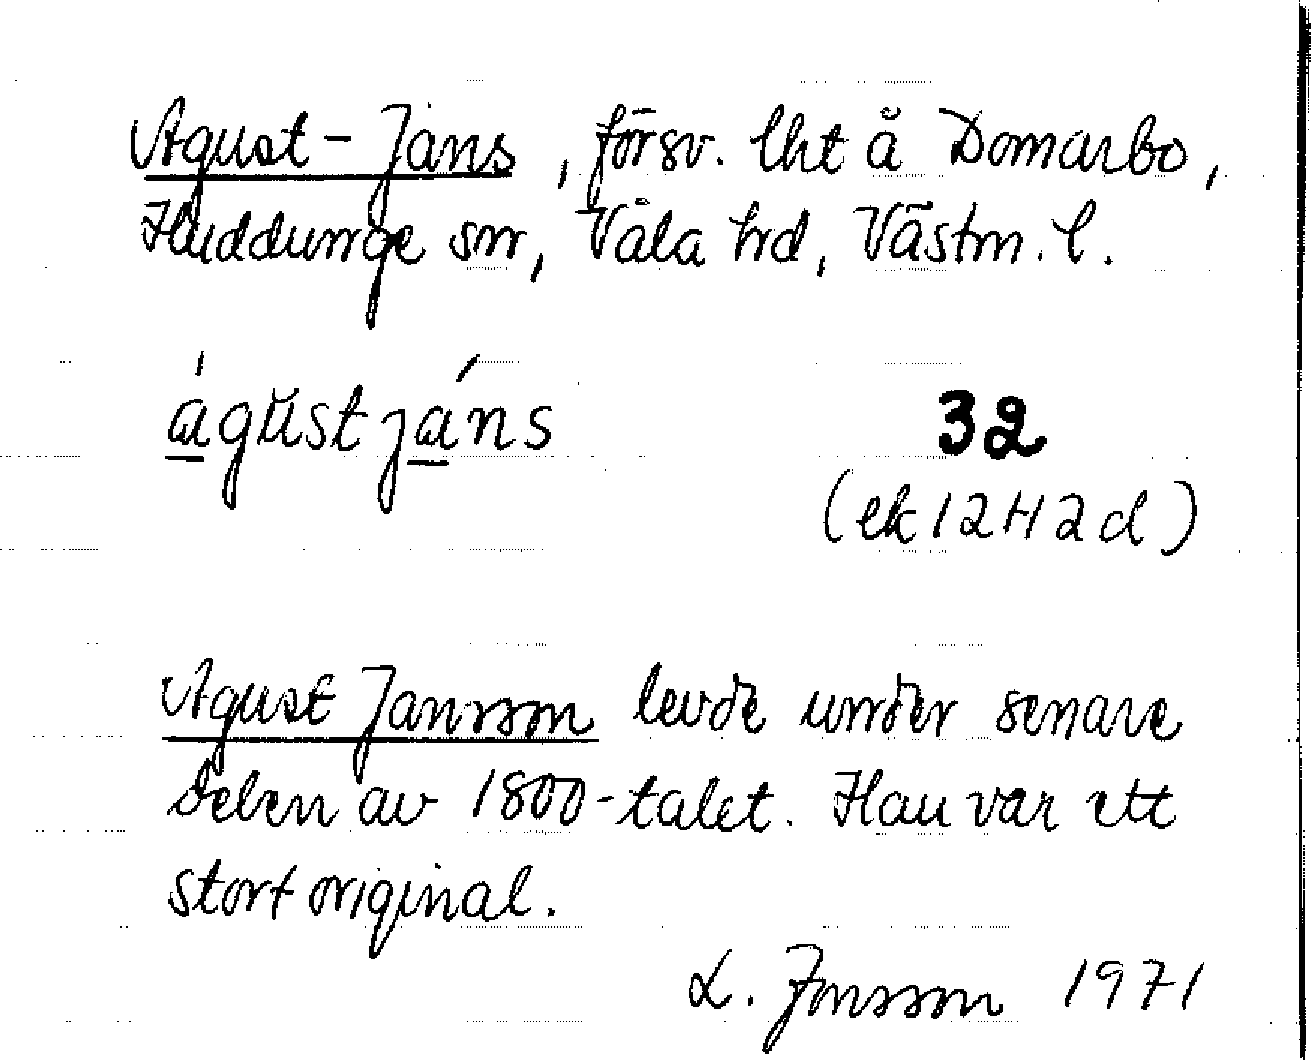 Agust-Jans, försv. lht å Domarbo,
Huddunge sn, Våla hd, Västm. l.
ágŭstjáns
32
(ek 12H2d)
Agust Jansson levde under senare
delen av 1800-talet. Han var ett
stort original.
L. Jonsson 1971